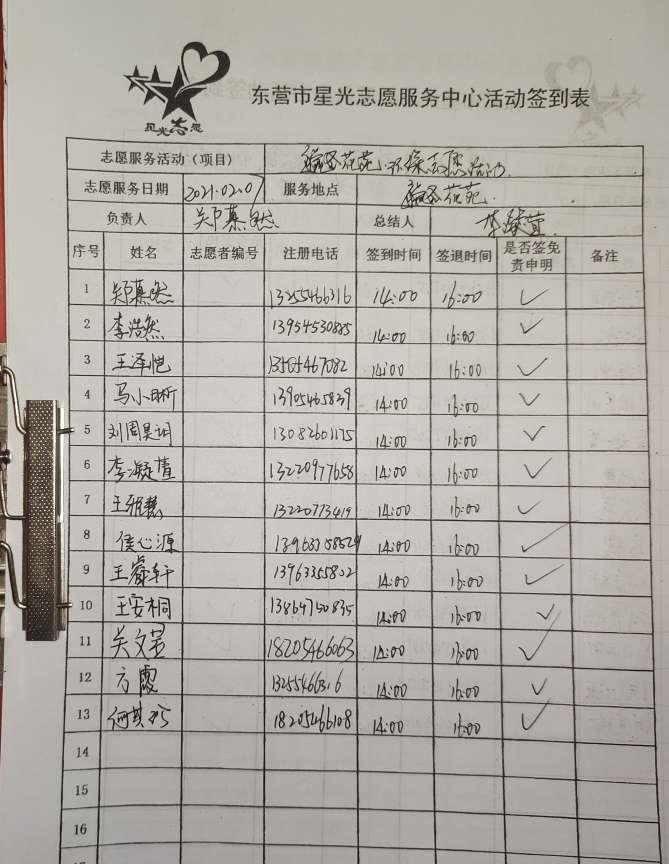 星光志愿
东营市星光志愿服务中心活动签到表
志愿服务活动（项目） 花苑环保志愿活动
志愿服务日期 2021.02.07 服务地点 花苑
负责人 郑慕然 总结人 李凝萱
序号 姓名 志愿者编号 注册电话 签到时间 签退时间 是否签免责申明 备注
1 郑慕然 13255466316 14:00 16:00 ✓
2 李浩然 13954530885 14:00 16:00 ✓
3 王泽恺 13505467082 14:00 16:00 ✓
4 马小晰 13905465839 14:00 16:00 ✓
5 刘周昊润 13082601175 14:00 16:00 ✓
6 李凝萱 13220977658 14:00 16:00 ✓
7 王雅慧 14:00 16:00 ✓
8 侯心源 14:00 16:00 ✓
9 王睿轩 13963355802 14:00 16:00 ✓
10 王安桐 13864750835 14:00 16:00 ✓
11 关文景 18205466063 14:00 16:00 ✓
12 方霞 13255466316 14:00 16:00 ✓
13 何其 18205466108 14:00 16:00 ✓
14
15
16